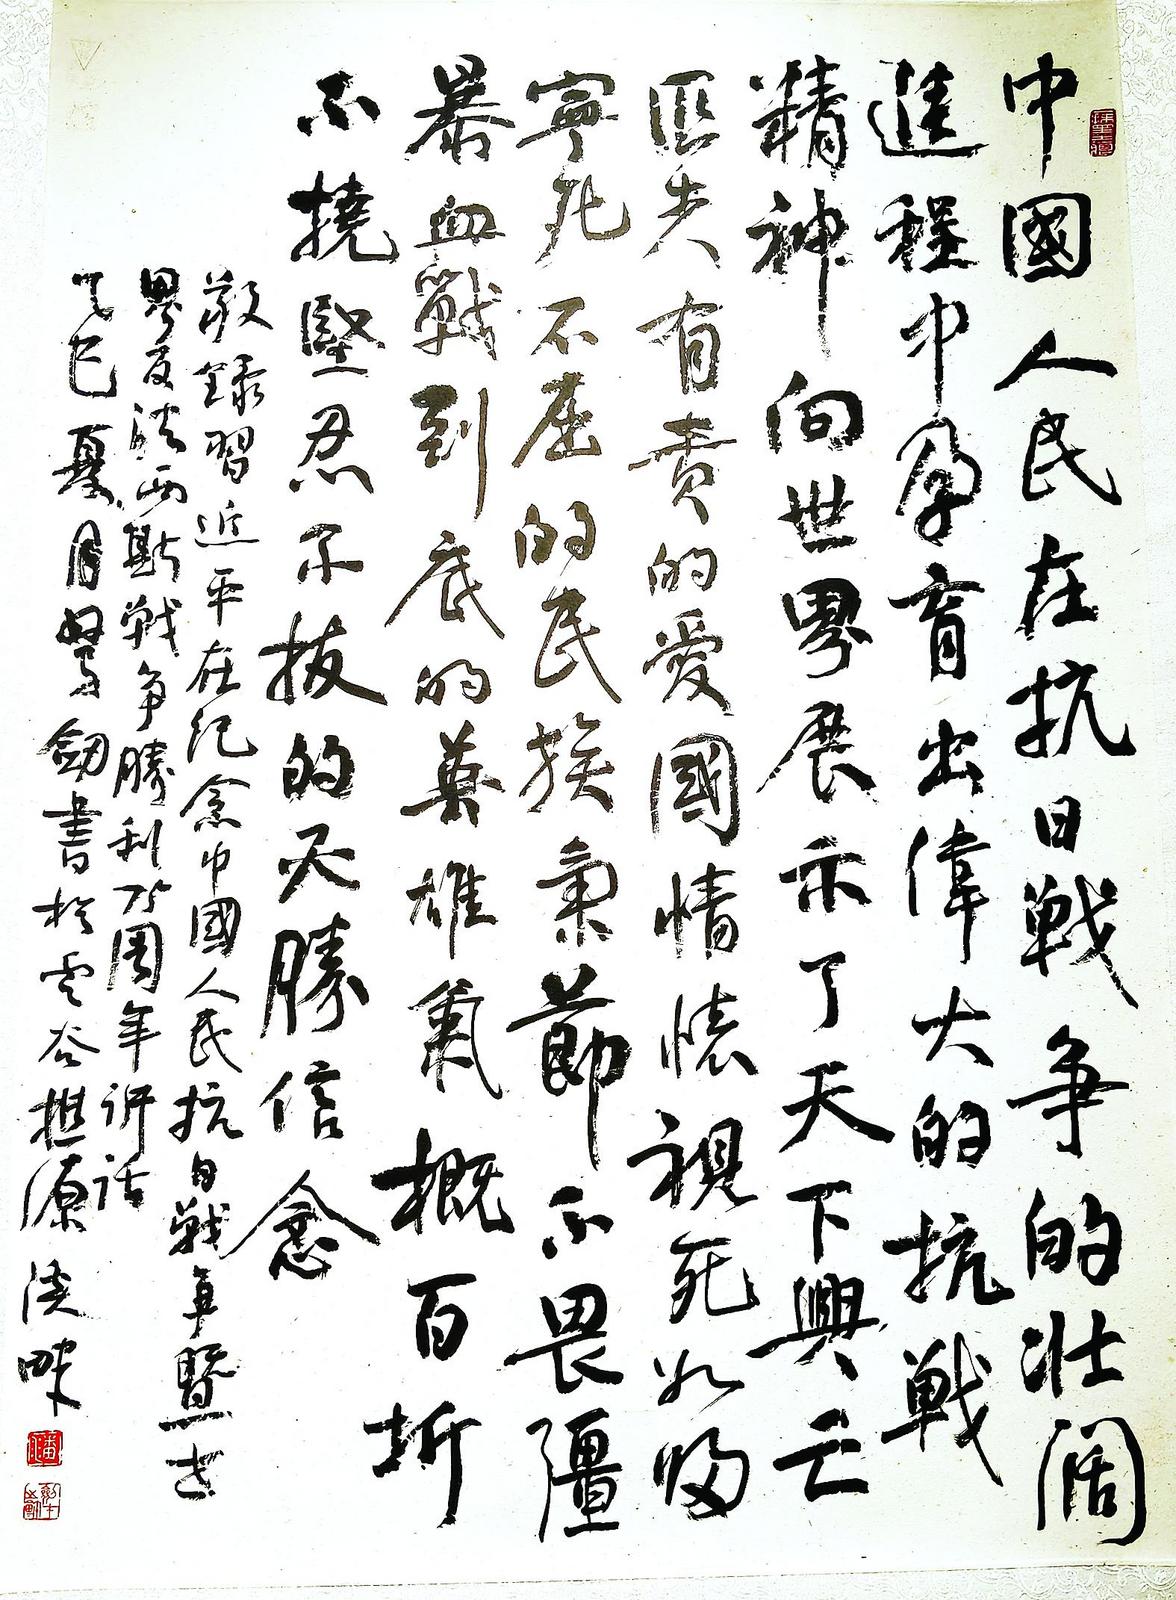 中國人民在抗日戰争的壯阔
進程中孕育出偉大的抗戰
精神向世界展示了天下興亡
匹夫有责的愛國情懷視死如歸
寧死不屈的民族氣節不畏彊
暴血戰到底的英雄氣概百折
不撓堅忍不拔的必勝信念
敬録習近平在纪念中國人民抗日戰争暨世
界反法西斯戰争勝利75周年讲话
乙巳夏月 劒書於雲谷 源淡畔